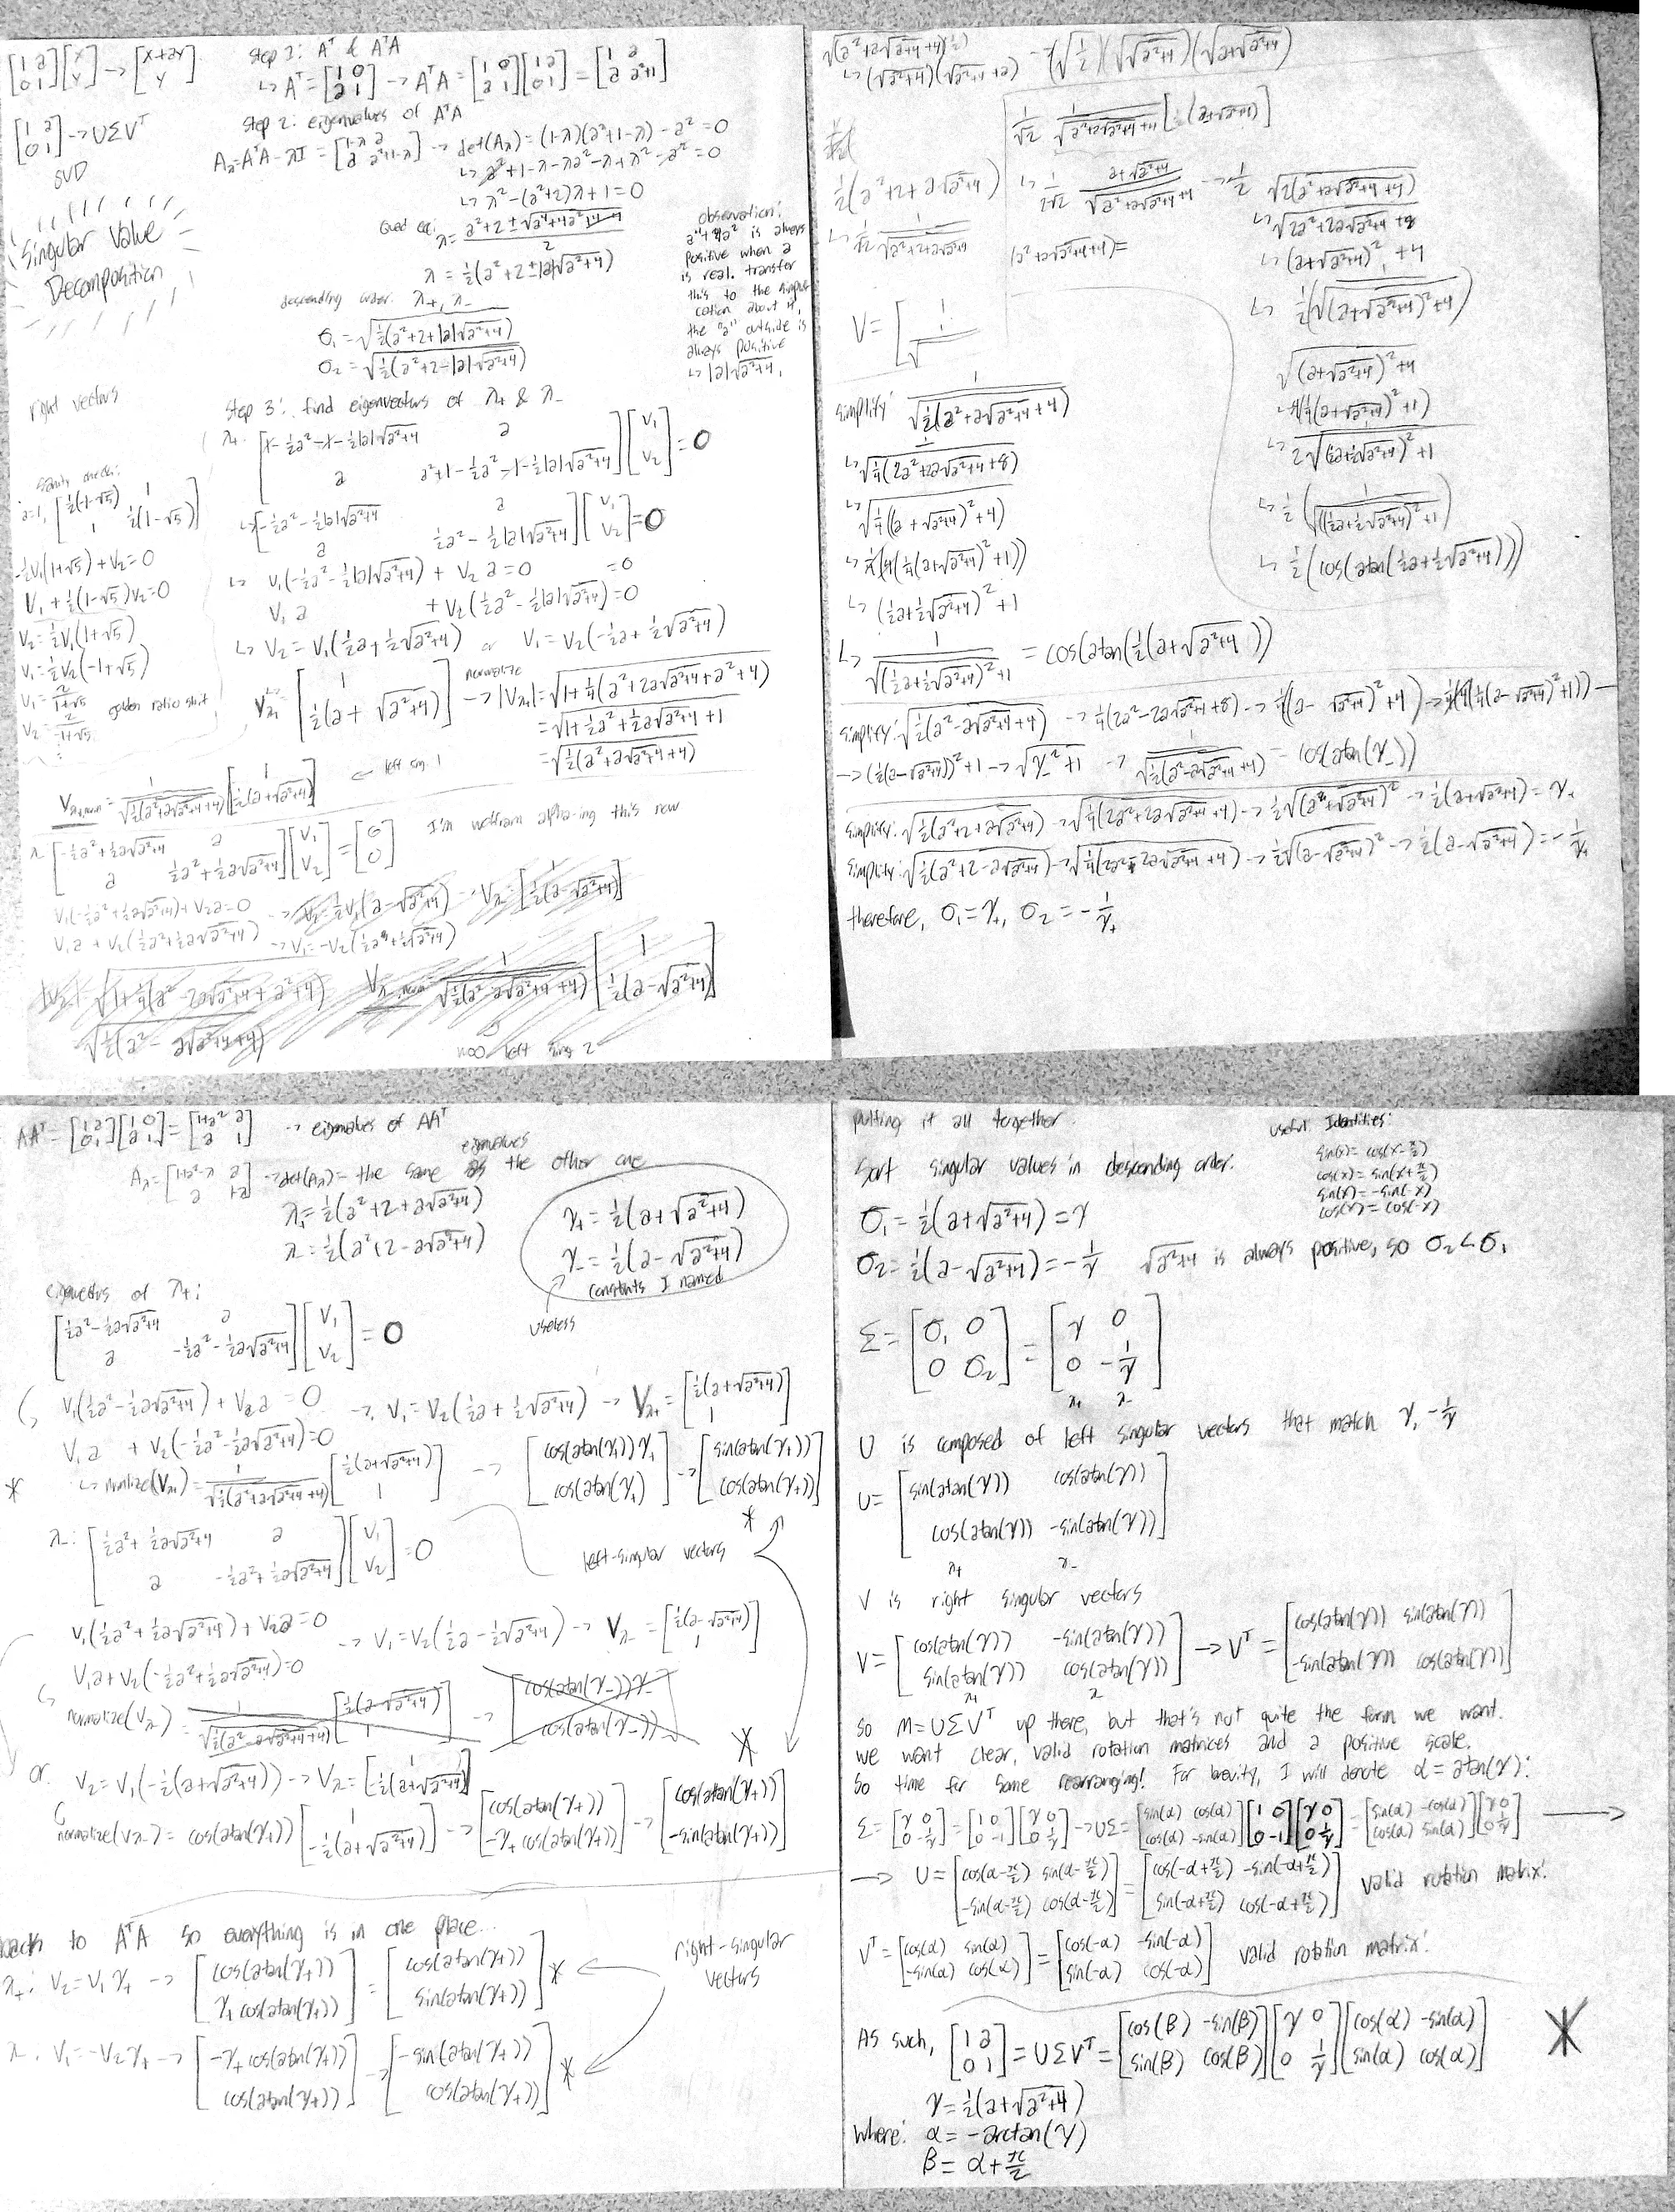 [1 a; 0 1][x; y] → [x+ay; y]
[1 a; 0 1] → UΣVᵀ
SVD
Singular Value
Decomposition
Step 1: Aᵀ & AᵀA
↳ Aᵀ = [1 0; a 1] → AᵀA = [1 0; a 1][1 a; 0 1] = [1 a; a a²+1]
Step 2: eigenvalues of AᵀA
A_λ = AᵀA - λI = [1-λ a; a a²+1-λ] → det(A_λ) = (1-λ)(a²+1-λ) - a² = 0
↳ a²+1-λ-λa²-λ+λ²-a² = 0
↳ λ²-(a²+2)λ+1 = 0
Quad eq: λ = (a²+2±√(a⁴+4a²+4-4))/2
λ = ½(a²+2±|a|√(a²+4))
descending order: λ₊, λ₋
σ₁ = √(½(a²+2+|a|√(a²+4)))
σ₂ = √(½(a²+2-|a|√(a²+4)))
observation:
a⁴+4a² is always
positive when a
is real. transfer
this to the simplifi
cation about it,
the "a" outside is
always positive
↳ |a|√(a²+4).
right vectors
Step 3: find eigenvectors of λ₊ & λ₋
λ₊: [1-½a²-1-½|a|√(a²+4) a; a a²+1-½a²-1-½|a|√(a²+4)][v₁; v₂] = 0
↳ [-½a²-½|a|√(a²+4) a; a ½a²-½|a|√(a²+4)][v₁; v₂] = 0
↳ v₁(-½a²-½|a|√(a²+4)) + v₂a = 0 = 0
v₁a + v₂(½a²-½|a|√(a²+4)) = 0
↳ v₂ = v₁(½a+½√(a²+4)) or v₁ = v₂(-½a+½√(a²+4))
v_λ₊ = [1; ½(a+√(a²+4))] normalize → |v_λ₊| = √(1+¼(a²+2a√(a²+4)+a²+4))
= √(1+½a²+½a√(a²+4)+1)
= √(½(a²+a√(a²+4)+4))
sanity check:
a=1, [½(-1-√5) 1; 1 ½(1-√5)]
-½v₁(1+√5)+v₂=0
v₁+½(1-√5)v₂=0
v₂=½v₁(1+√5)
v₁=½v₂(-1+√5)
v₁=2/(1+√5)
v₂=2/(-1+√5)
golden ratio shit
v_λ₊,norm = 1/√(½(a²+a√(a²+4)+4)) [1; ½(a+√(a²+4))] ← left sing. 1
λ₋ [-½a²+½a√(a²+4) a; a ½a²+½a√(a²+4)][v₁; v₂] = [0; 0] I'm wolfram alpha-ing this now
v₁(-½a²+½a√(a²+4))+v₂a=0 → v₂=½v₁(a-√(a²+4)) → v_λ₋=[1; ½(a-√(a²+4))]
v₁a+v₂(½a²+½a√(a²+4)) → v₁=-v₂(½a+½√(a²+4))
|v_λ₋| √(1+¼(a²-2a√(a²+4)+a²+4)) v_λ₋,norm 1/√(½(a²-a√(a²+4)+4)) [1; ½(a-√(a²+4))]
√(½(a²-a√(a²+4)+4))
noo left sing 2
√((a²+a√(a²+4)+4)(½))
↳ (√(a²+4))(√(a²+4)+a) → (√½)(√√(a²+4))(√(a+√(a²+4)))
1/√2 1/√(a²+a√(a²+4)+4) [1; (a+√(a²+4))]
½(a²+2+a√(a²+4))
↳ 1/(2√2) (a+√(a²+4))/√(a²+a√(a²+4)+4) → ½ √(2(a²+a√(a²+4)+4))
↳ √(2a²+2a√(a²+4)+8)
(a²+a√(a²+4)+4)=
↳ (a+√(a²+4))²+4
↳ ½(√((a+√(a²+4))²+4))
V = [1/√
√((a+√(a²+4))²+4)
4(¼(a+√(a²+4))²+1)
↳ 2√((½a+½√(a²+4))²+1)
↳ ½(1/√((½a+½√(a²+4))²+1))
↳ ½(cos(atan(½a+½√(a²+4))))
simplify: 1/√(½(a²+a√(a²+4)+4))
↳ 1/√(¼(2a²+2a√(a²+4)+8))
↳ √(¼((a+√(a²+4))²+4))
↳ ¼(4(¼(a+√(a²+4))²+1))
↳ (½a+½√(a²+4))²+1
↳ 1/√((½a+½√(a²+4))²+1) = cos(atan(½(a+√(a²+4))))
simplify: √(½(a²-a√(a²+4)+4)) → ¼(2a²-2a√(a²+4)+8) → ¼((a-√(a²+4))²+4) → ¼(4(¼(a-√(a²+4))²+1)) —
→ (½(a-√(a²+4)))²+1 → √(γ₋²+1) → 1/√(½(a²-a√(a²+4)+4)) = cos(atan(γ₋))
simplify: √(½(a²+2+a√(a²+4))) → √(¼(2a²+2a√(a²+4)+4)) → ½√((a+√(a²+4))²) → ½(a+√(a²+4)) = γ₊
simplify: √(½(a²+2-a√(a²+4))) → √(¼(2a²-2a√(a²+4)+4)) → ½√((a-√(a²+4))²) → ½(a-√(a²+4)) = -1/γ₊
therefore, σ₁=γ₊, σ₂=-1/γ₊
AAᵀ = [1 a; 0 1][1 0; a 1] = [1+a² a; a 1] → eigenvalues of AAᵀ
A_λ = [1+a²-λ a; a 1-λ] → det(A_λ) = the same eigenvalues as the other one
λ₊=½(a²+2+a√(a²+4))
λ₋=½(a²+2-a√(a²+4))
γ₊=½(a+√(a²+4))
γ₋=½(a-√(a²+4))
constants I named
useless
eigenvectors of λ₊:
[½a²-½a√(a²+4) a; a -½a²-½a√(a²+4)][v₁; v₂] = 0
↳ v₁(½a²-½a√(a²+4))+v₂a = 0 → v₁=v₂(½a+½√(a²+4)) → v_λ₊=[½(a+√(a²+4)); 1]
v₁a + v₂(-½a²-½a√(a²+4))=0
* ↳ normalize(v_λ₊)= 1/√(½(a²+a√(a²+4)+4)) [½(a+√(a²+4)); 1] → [cos(atan(γ₊))γ₊; cos(atan(γ₊))] → [sin(atan(γ₊)); cos(atan(γ₊))] *
λ₋: [½a²+½a√(a²+4) a; a -½a²+½a√(a²+4)][v₁; v₂] = 0
left-singular vectors
v₁(½a²+½a√(a²+4))+v₂a=0 → v₁=v₂(½a-½√(a²+4)) → v_λ₋=[½(a-√(a²+4)); 1]
v₁a+v₂(-½a²+½a√(a²+4))=0
↳ normalize(v_λ₋) = 1/√(½(a²-a√(a²+4)+4)) [½(a-√(a²+4)); 1] → [cos(atan(γ₋))γ₋; cos(atan(γ₋))]
or: v₂=v₁(-½(a+√(a²+4))) → v_λ₋=[1; -½(a+√(a²+4))]
↳ normalize(v_λ₋)= cos(atan(γ₊))[1; -½(a+√(a²+4))] → [cos(atan(γ₊)); -γ₊cos(atan(γ₊))] → [cos(atan(γ₊)); -sin(atan(γ₊))] *
back to AᵀA so everything is in one place...
λ₊: v₂=v₁γ₊ → [cos(atan(γ₊)); γ₊cos(atan(γ₊))] = [cos(atan(γ₊)); sin(atan(γ₊))] *
right-singular
vectors
λ₋: v₁=-v₂γ₊ → [-γ₊cos(atan(γ₊)); cos(atan(γ₊))] → [-sin(atan(γ₊)); cos(atan(γ₊))] *
putting it all together.
Useful Identities:
sin(x)=cos(x-π/2)
cos(x)=sin(x+π/2)
sin(x)=-sin(-x)
cos(x)=cos(-x)
Sort singular values in descending order.
σ₁=½(a+√(a²+4))=γ
σ₂=½(a-√(a²+4))=-1/γ √(a²+4) is always positive, so σ₂<σ₁
Σ=[σ₁ 0; 0 σ₂]=[γ 0; 0 -1/γ]
λ₊ λ₋
U is composed of left singular vectors that match γ, -1/γ
U=[sin(atan(γ)) cos(atan(γ)); cos(atan(γ)) -sin(atan(γ))]
λ₊ λ₋
V is right singular vectors
V=[cos(atan(γ)) -sin(atan(γ)); sin(atan(γ)) cos(atan(γ))] → Vᵀ=[cos(atan(γ)) sin(atan(γ)); -sin(atan(γ)) cos(atan(γ))]
λ₊ λ₋
So M=UΣVᵀ up there, but that's not quite the form we want.
we want clear, valid rotation matrices and a positive scale.
So time for some rearranging! For brevity, I will denote α=atan(γ):
Σ=[γ 0; 0 -1/γ]=[1 0; 0 -1][γ 0; 0 1/γ] → UΣ=[sin(α) cos(α); cos(α) -sin(α)][1 0; 0 -1][γ 0; 0 1/γ]=[sin(α) -cos(α); cos(α) sin(α)][γ 0; 0 1/γ] →
→ U=[cos(α-π/2) sin(α-π/2); -sin(α-π/2) cos(α-π/2)]=[cos(-α+π/2) -sin(-α+π/2); sin(-α+π/2) cos(-α+π/2)] valid rotation matrix!
Vᵀ=[cos(α) sin(α); -sin(α) cos(α)]=[cos(-α) -sin(-α); sin(-α) cos(-α)] valid rotation matrix!
As such, [1 a; 0 1]=UΣVᵀ=[cos(β) -sin(β); sin(β) cos(β)][γ 0; 0 1/γ][cos(α) -sin(α); sin(α) cos(α)] *
γ=½(a+√(a²+4))
where: α=-arctan(γ)
β=α+π/2